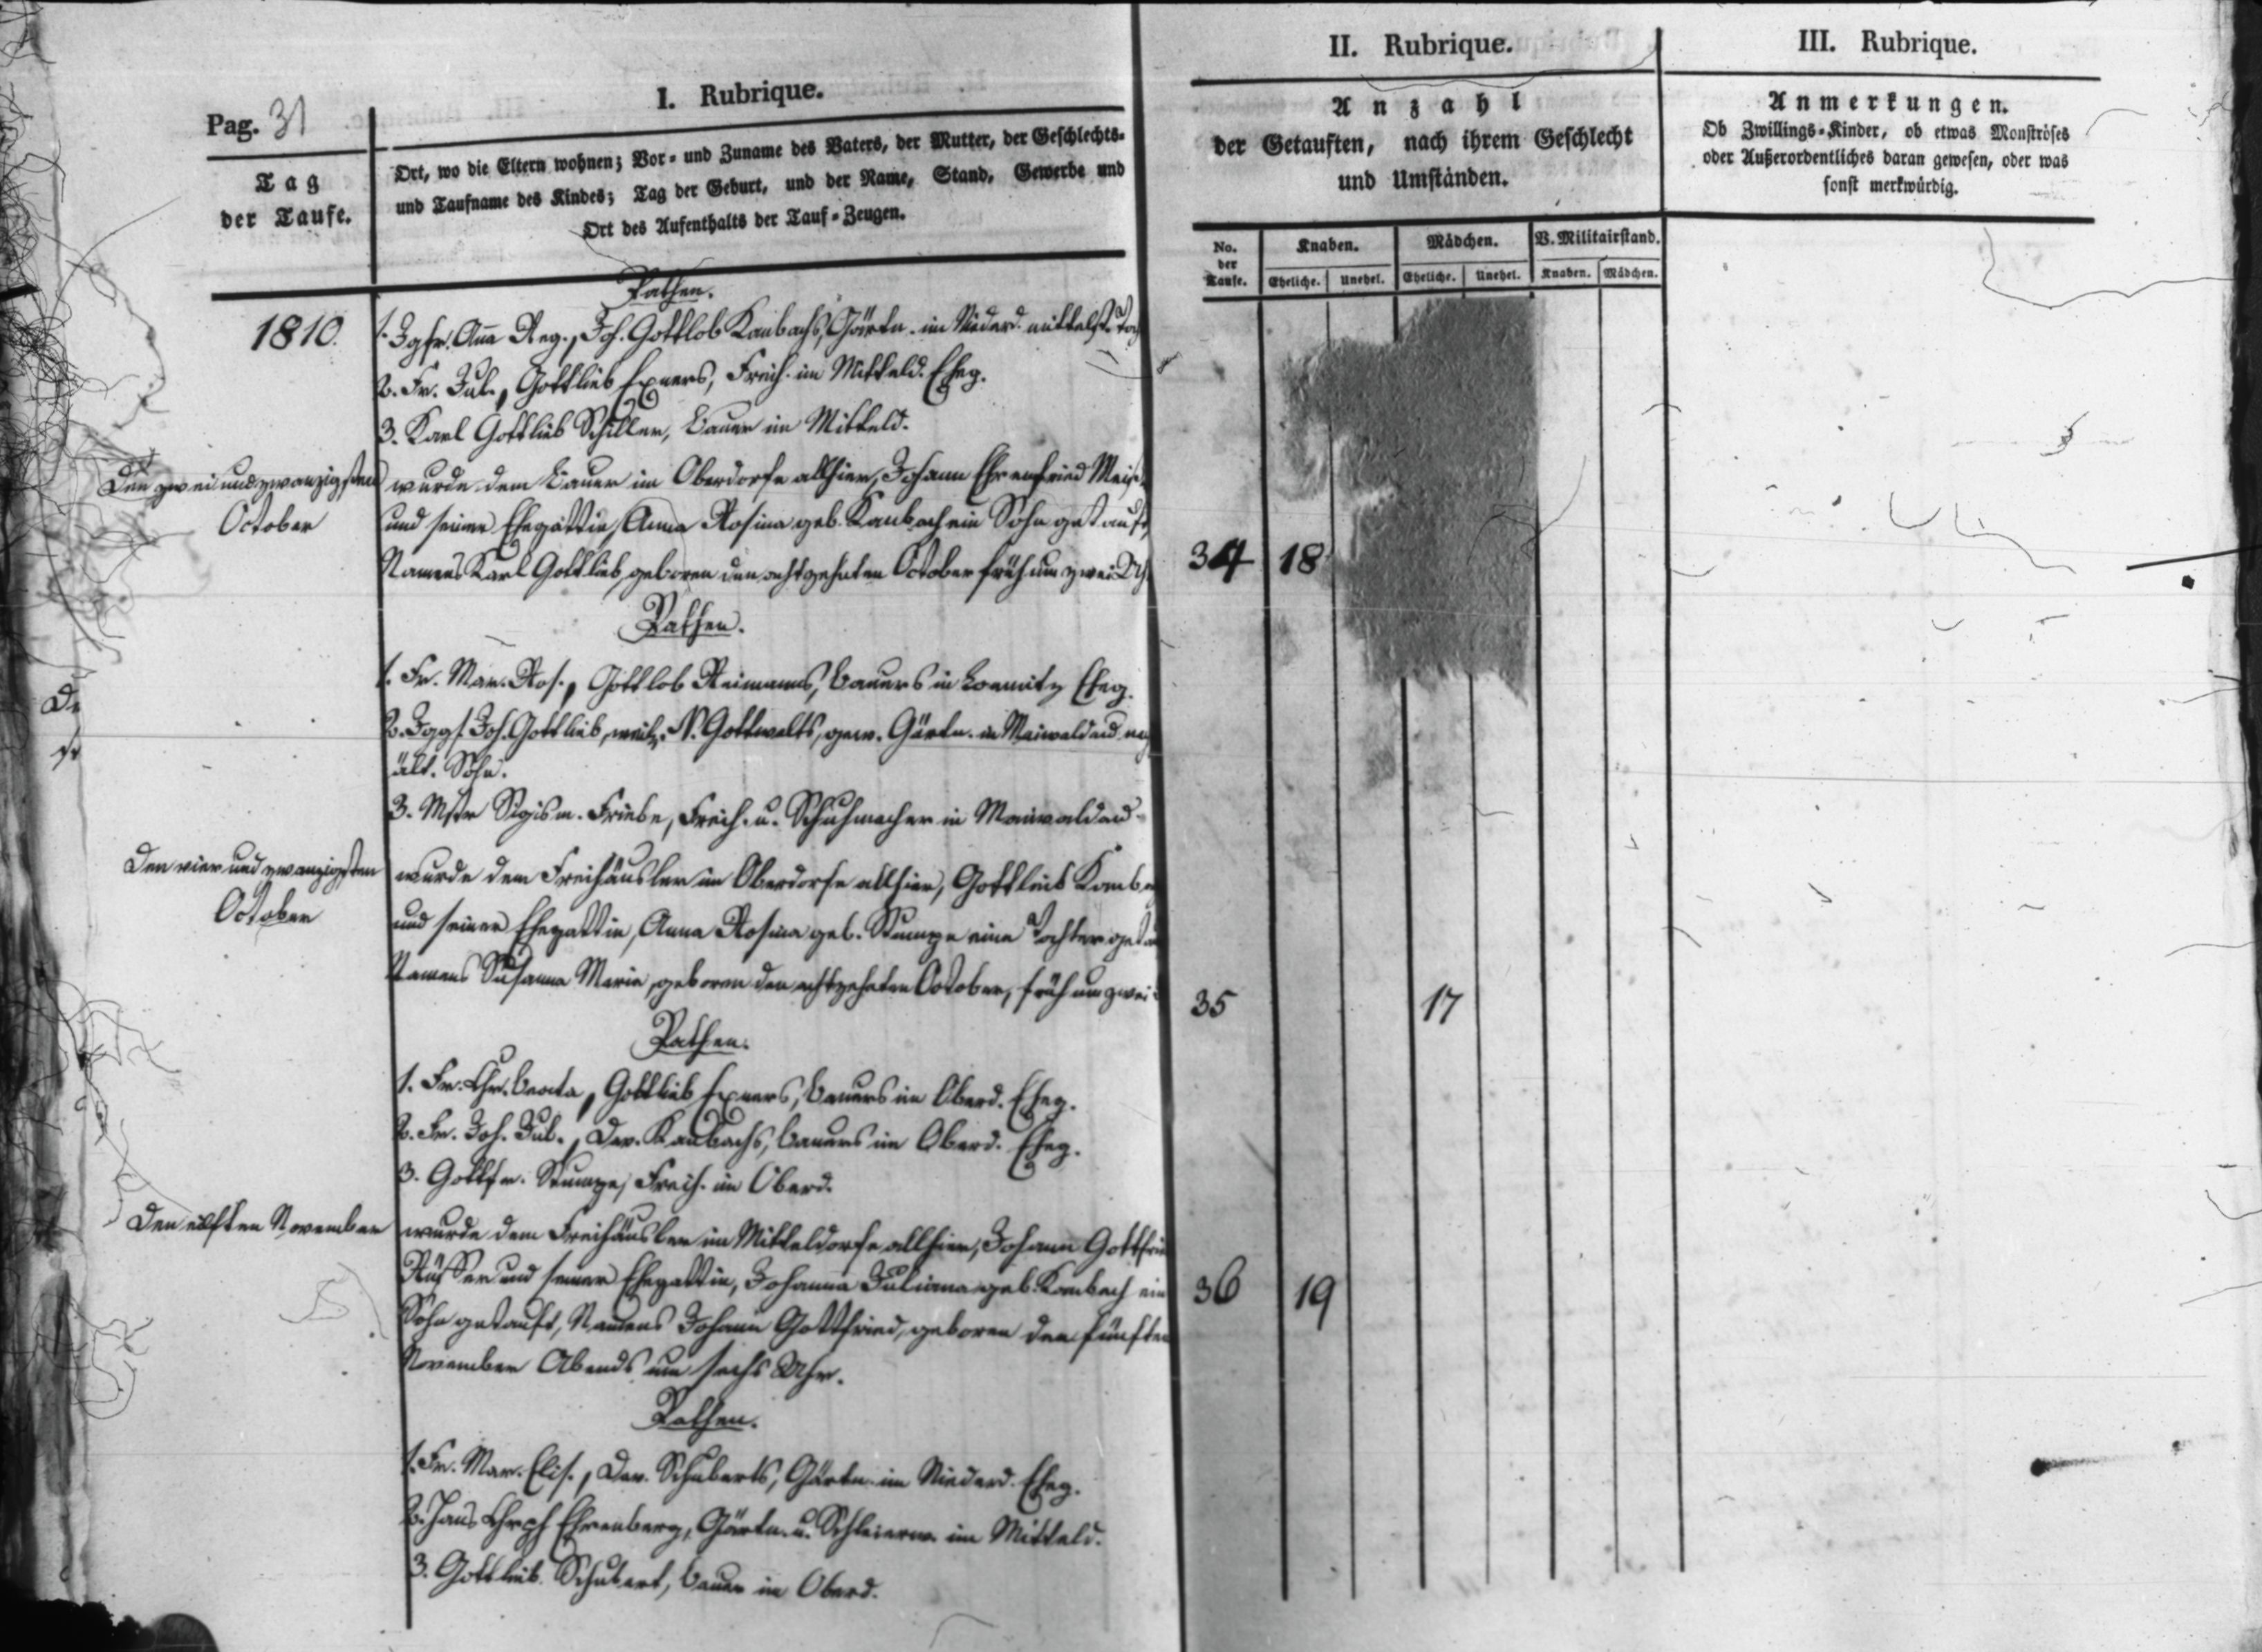 Pag. 31
I. Rubrique.
Tag
der Taufe.
Ort, wo die Eltern wohnen; Vor- und Zuname des Vaters, der Mutter, der Geschlechts-
und Taufname des Kindes; Tag der Geburt, und der Name, Stand, Gewerbe und
Ort des Aufenthalts der Tauf-Zeugen.
1810.
Pathen.
1. Jgfr. Aña Reg., Joh. Gottlob Kambachs, Gärtn. im Niederd. mittelst. Toch
2. Fr. Jul., Gottlieb Exners, Freih. im Mitteld. Eheg.
3. Karl Gottlieb Schiller, Bauer im Mitteld.
Den zwei und zwanzigsten
October
wurde dem Bauer im Oberdorfe allhier, Johann Ehrenfried
und seiner Ehegattin, Anna Rosina geb. Kambach ein Sohn getauft,
Namens Karl Gottlieb, geboren den achtzehnten October früh um zwei Uh
Pathen.
1. Fr. Mar. Ros., Gottlob Reimanns, Bauers in Lomnitz Eheg.
2. Jggs. Joh. Gottlieb, weil. N. Gottwalts, gew. Gärtn. in Maiwaldau
ält. Sohn.
3. Mstr Sigism. Friebe, Freih. u. Schuhmacher in Maiwaldau
Den vier und zwanzigsten
October
wurde dem Freihäusler im Oberdorfe allhier, Gottlieb Kamba
und seiner Ehegattin, Anna Rosina geb. Stumpe eine Tochter geta
Namens Susanna Maria, geboren den achtzehnten October, früh um zwei
Pathen.
1. Fr. Chr. Beata, Gottlieb Exners, Bauers im Oberd. Eheg.
2. Fr. Joh. Jul., Dav. Kambachs, Bauers im Oberd. Eheg.
3. Gottfr. Stumpe, Freih. im Oberd.
Den eilften November
wurde dem Freihäusler im Mitteldorfe allhier, Johann Gottfrie
und seiner Ehegattin, Johanna Juliana geb. Kambach ein
Sohn getauft, Namens Johann Gottfried, geboren den fünften
November Abends um sechs Uhr.
Pathen.
1. Fr. Mar. Elis., Dav. Schuberts, Gärtn. im Niederd. Eheg.
2. Hans Chrph Ehrenberg, Gärtn. u. Schleierw. im Mitteld.
3. Gottlieb Schubert, Bauer im Oberd.
II. Rubrique.
Anzahl
der Getauften, nach ihrem Geschlecht
und Umständen.
No.
der
Taufe.
Knaben.
Mädchen.
V. Militairstand.
Eheliche.
Unehel.
Eheliche.
Unehel.
Knaben.
Mädchen.
34 18
35 17
36 19
III. Rubrique.
Anmerkungen.
Ob Zwillings-Kinder, ob etwas Monströses
oder Außerordentliches daran gewesen, oder was
sonst merkwürdig.